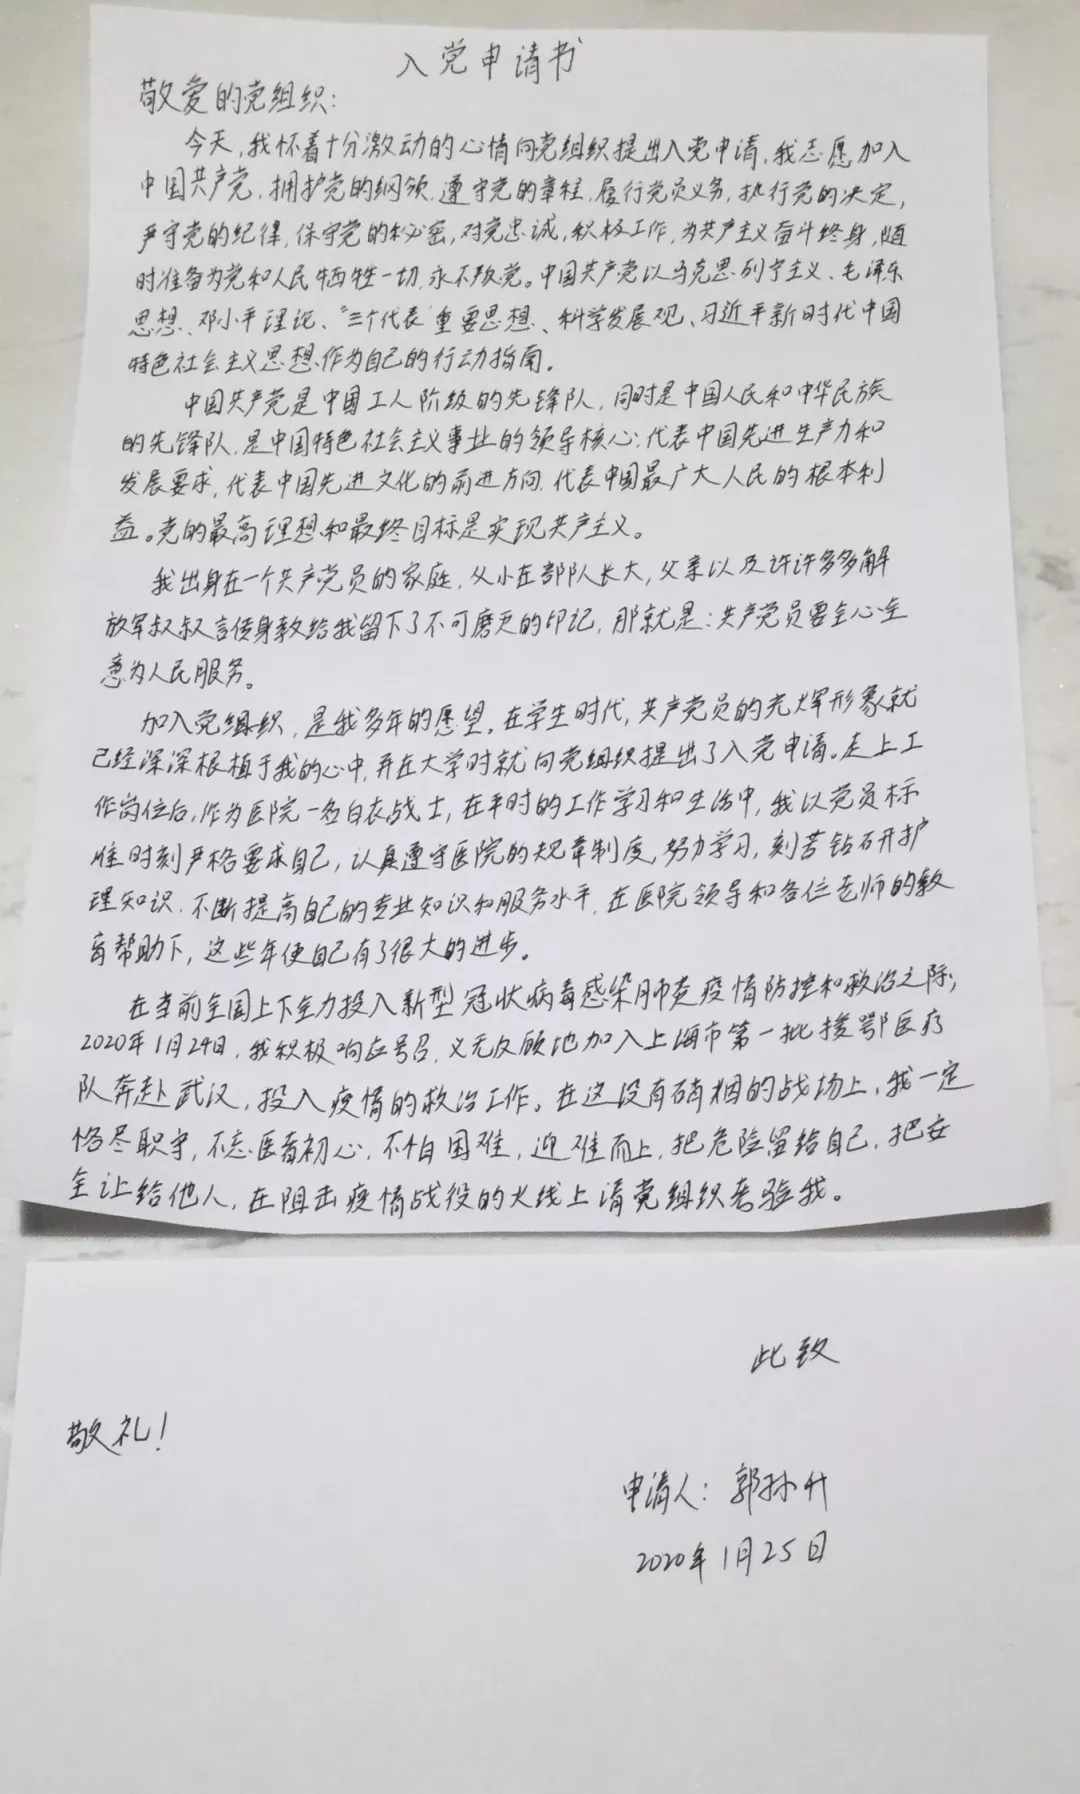 入党申请书
敬爱的党组织:
今天,我怀着十分激动的心情向党组织提出入党申请,我志愿加入
中国共产党,拥护党的纲领,遵守党的章程,履行党员义务,执行党的决定,
严守党的纪律,保守党的秘密,对党忠诚,积极工作,为共产主义奋斗终身,随
时准备为党和人民牺牲一切,永不叛党。中国共产党以马克思列宁主义、毛泽东
思想、邓小平理论、“三个代表”重要思想、科学发展观、习近平新时代中国
特色社会主义思想作为自己的行动指南。
中国共产党是中国工人阶级的先锋队,同时是中国人民和中华民族
的先锋队,是中国特色社会主义事业的领导核心,代表中国先进生产力和
发展要求,代表中国先进文化的前进方向,代表中国最广大人民的根本利
益。党的最高理想和最终目标是实现共产主义。
我出身在一个共产党员的家庭,从小在部队长大,父亲以及许许多多解
放军叔叔言传身教给我留下了不可磨灭的印记,那就是:共产党员要全心全
意为人民服务。
加入党组织,是我多年的愿望。在学生时代,共产党员的光辉形象就
已经深深根植于我的心中,并在大学时就向党组织提出了入党申请。走上工
作岗位后,作为医院一名白衣战士,在平时的工作学习和生活中,我以党员标
准时刻严格要求自己,认真遵守医院的规章制度,努力学习,刻苦钻研护
理知识,不断提高自己的专业知识和服务水平,在医院领导和各位老师的教
育帮助下,这些年使自己有了很大的进步。
在当前全国上下全力投入新型冠状病毒感染肺炎疫情防控和救治之际,
2020年1月24日,我积极响应号召,义无反顾地加入上海市第一批援鄂医疗
队奔赴武汉,投入疫情的救治工作。在这没有硝烟的战场上,我一定
恪尽职守,不忘医者初心,不怕困难,迎难而上,把危险留给自己,把安
全让给他人,在阻击疫情战役的火线上请党组织考验我。
此致
敬礼!
申请人:郭孙升
2020年1月25日